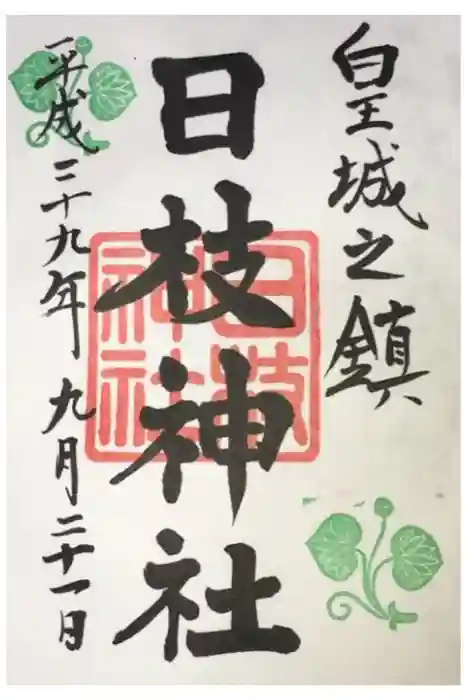 皇城之鎮
日枝神社
平成二十九年九月二十一日
日枝
神社